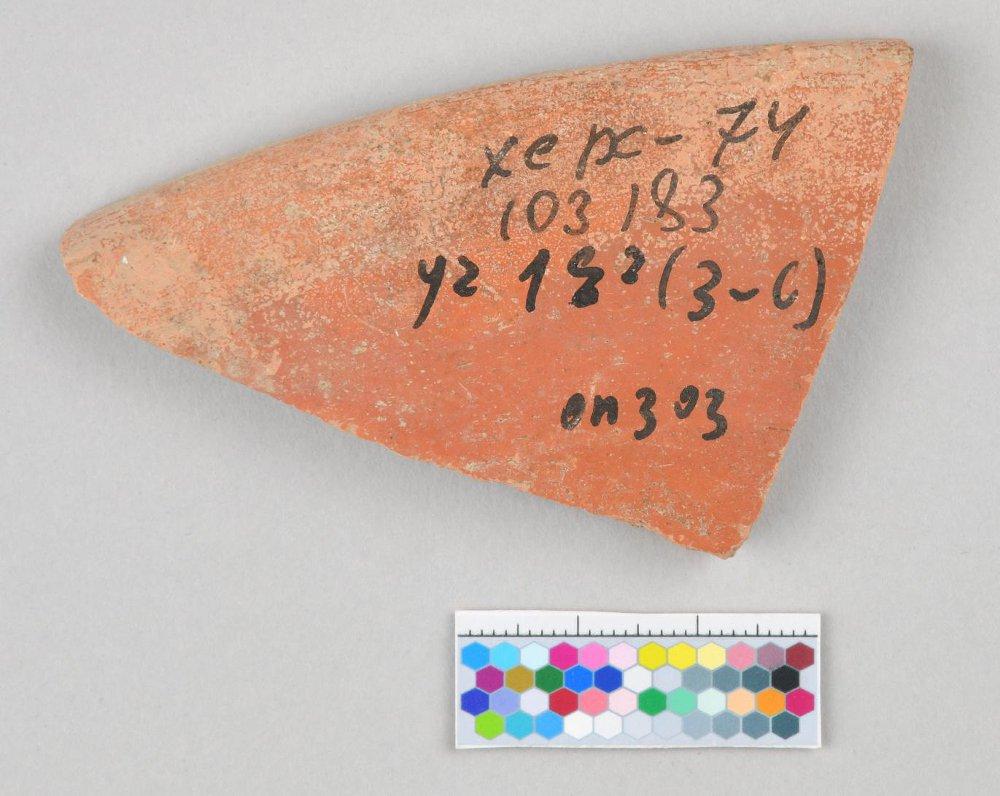 херс-74
103183
уг 182 (3-С)
оп 303